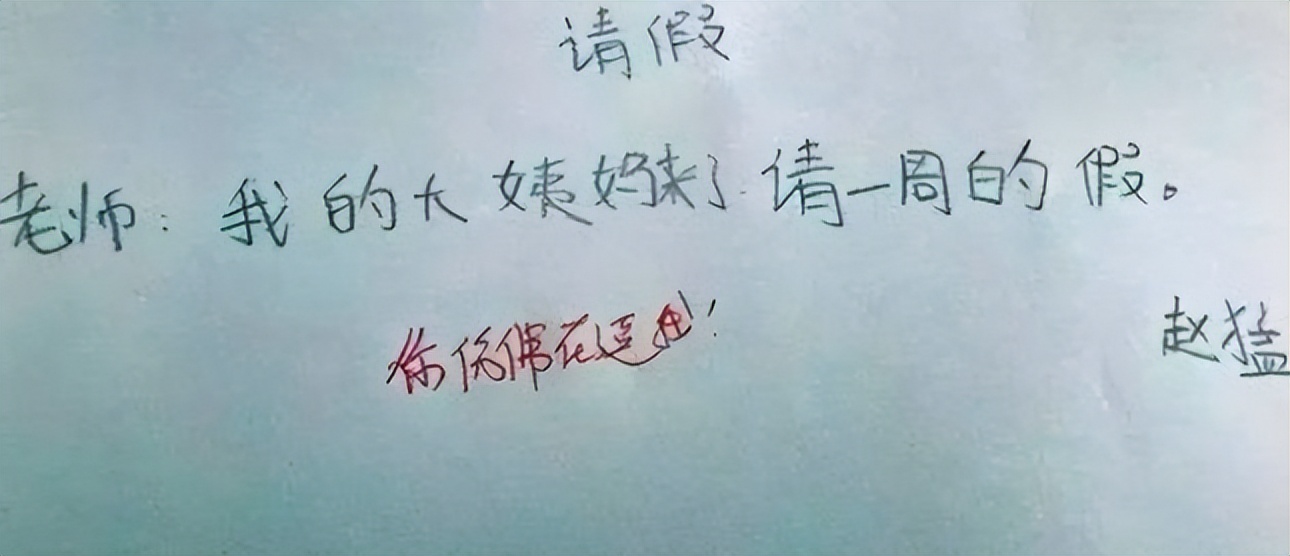 请假
老师：我的大姨妈来了请一周的假。
你 在逗我！
赵猛